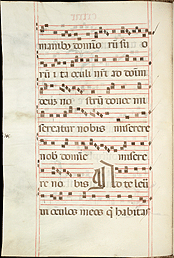 manibus domino rū suoꝝ o
rū i ta oculi nr̄i ad dom̄
deus no strū donec mi
sereatur nobis miserere
nob domīe miserere
re no bis Ad te leua
ui oculos meos q̄ habitas